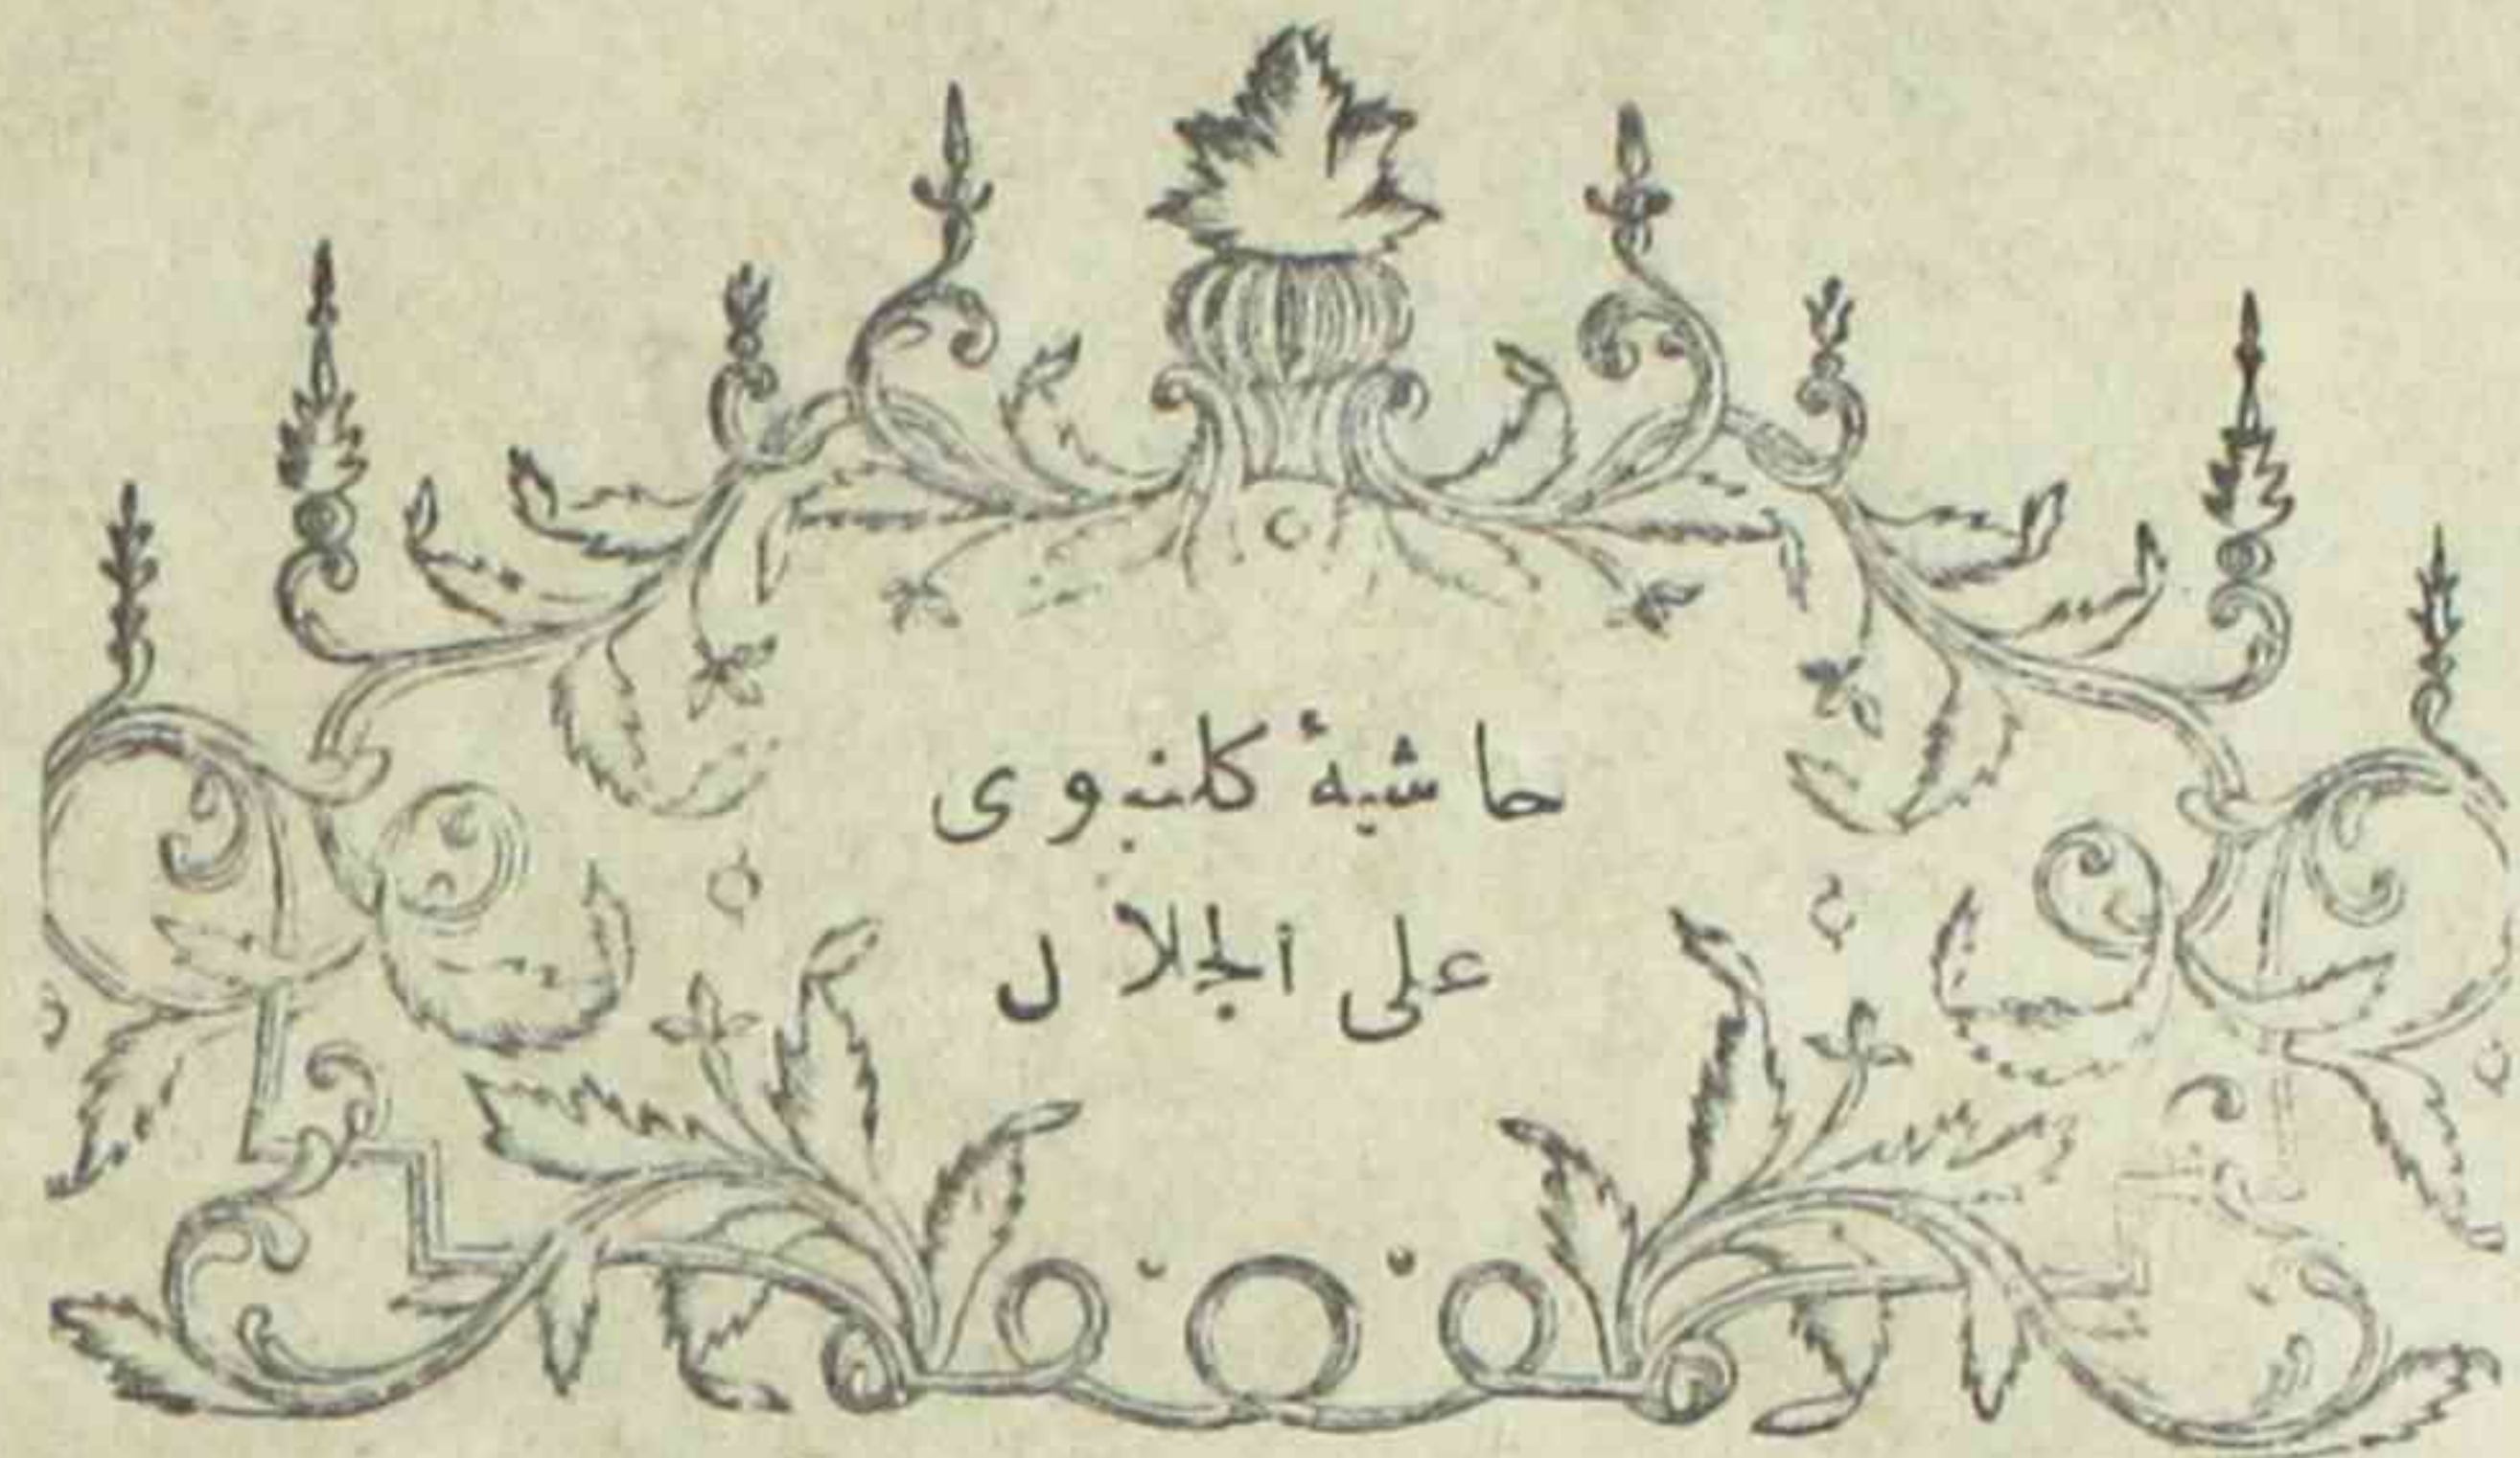 حاشيهٔ كلنبوى
على الجلال